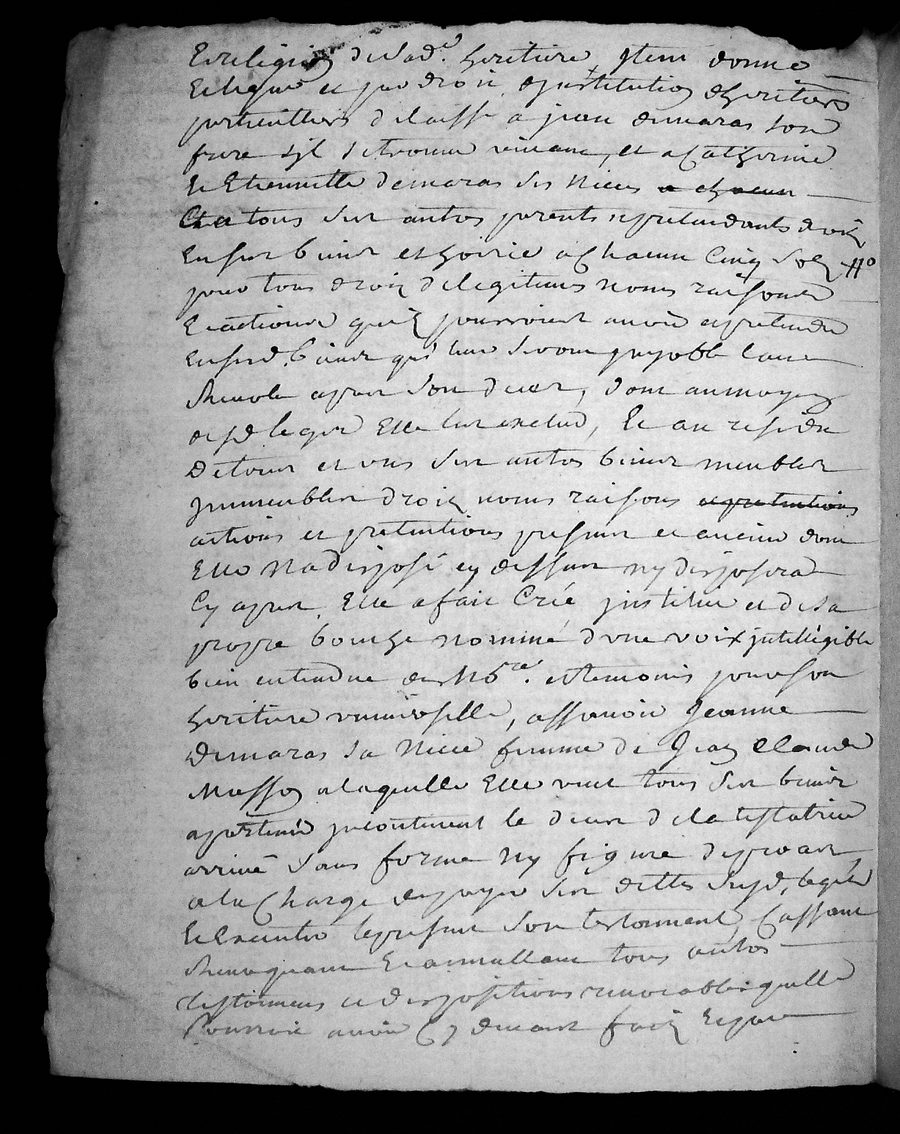 Et religion de sad.e heritiere, Item donne
Et legue et par droit d'institution d'heritiers
particulliers delaisse a jean demaras son
frere s'il se trouve vivant, et a Catherine
Et Etiennette demaras ses Nieces a chacun
Et a tous ses autres parents pretendants droit
En ses biens et hoirie a Chacun Cinq Solz
pour tous droitz de legitimes noms raisons
Et actions quilz pourroient avoir et pretendre
Ensesd. biens qui leur seront payable l'année
revolue apres son deces, dont au moyen
desd. legat Elle les exclud, Et au residu
De tous et uns ses autres biens meubles
Immeubles droitz noms raisons et pretentions
actions et pretentions presents et avenir dont
Elle Na disposé cy dessus ny disposera
Cy apres, Elle a fait Créé institué et de sa
propre bouche nommé d'une voix intelligible
bien entendue de no.re et temoins pour son
heritiere universelle, assavoir Jeanne
Demaras sa Niece femme de Jean Claude
Masson a laquelle Elle veut tous ses biens
apartenir incontinent le deces de la testatrice
arrivé sans forme ny figure de proces
a la Charge de payer ses dettes susd. legats
Et Executer le present son testament, Cassant
revoquant Et annullant tous autres
testaments et dispositions revocables quelle
Pourroit avoir Cy devant fait Et pare